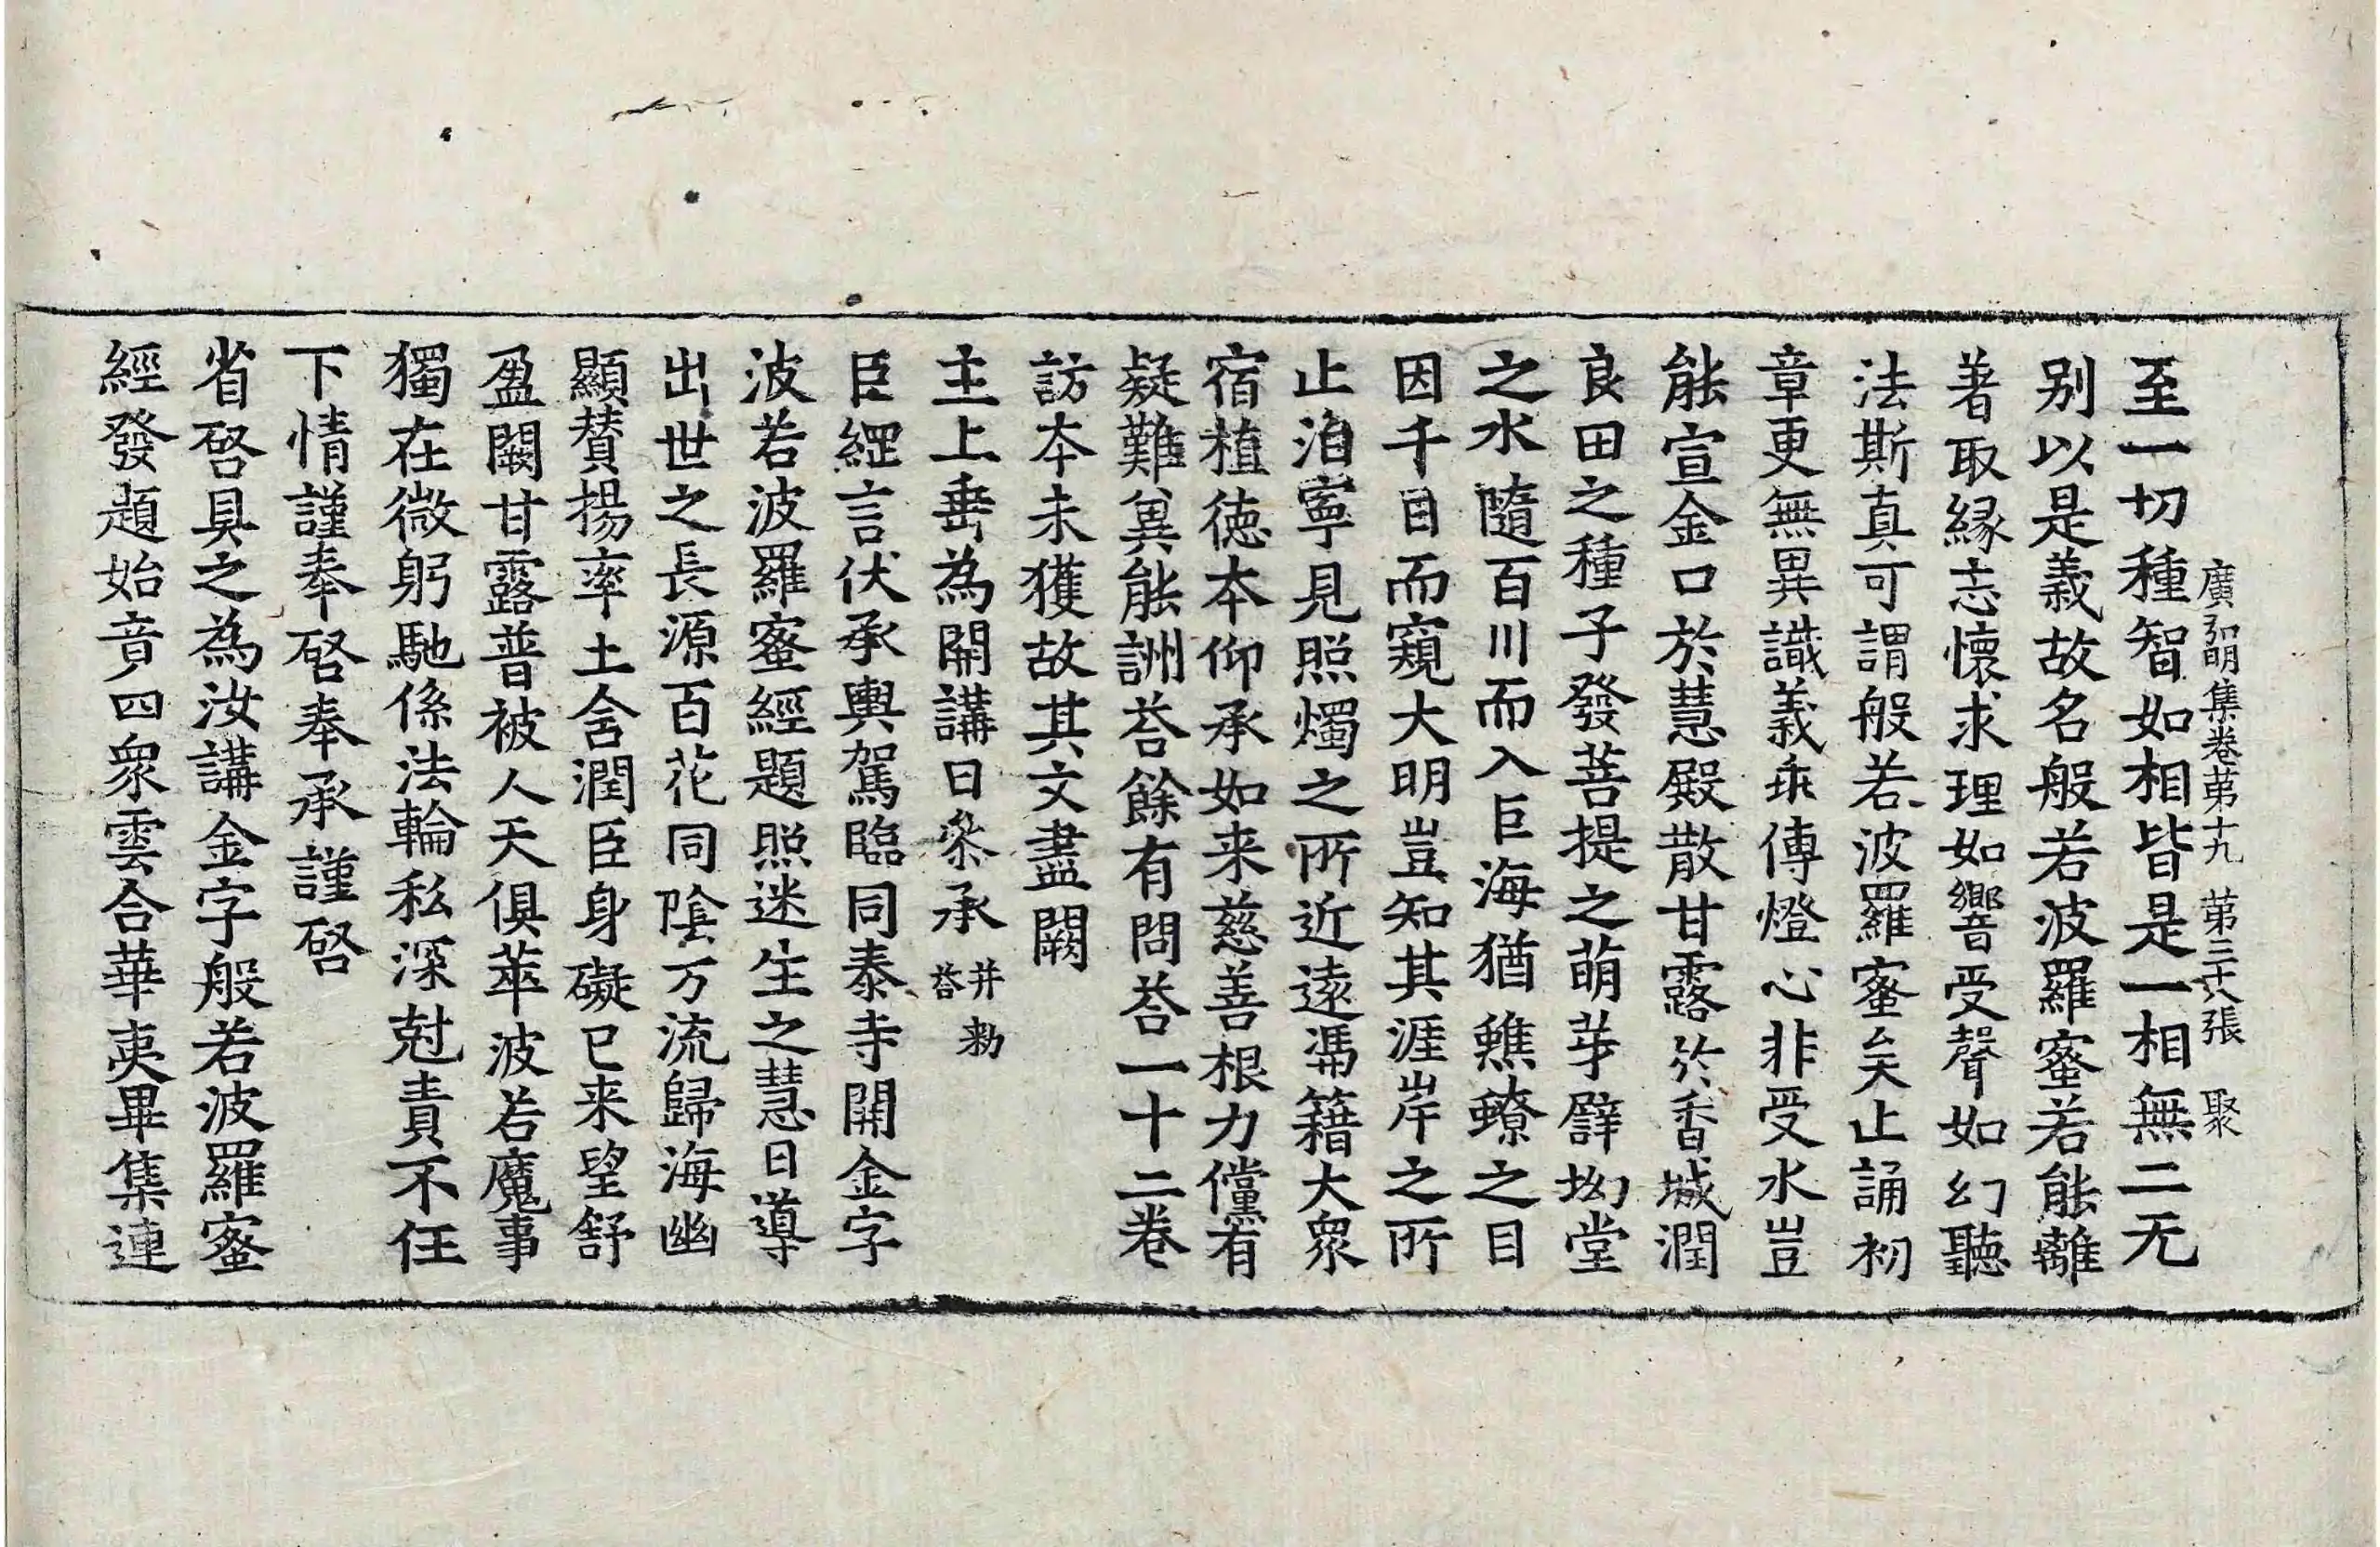 廣弘明集卷苐十九 苐三十八張 聚
至一切種智如相皆是一相無二无
别以是義故名般若波羅蜜若能離
著取緣志懷求理如響受聲如幻聽
法斯真可謂般若波羅蜜矣止誦初
章更無異識義乖傳燈心非受水豈
能宣金口於慧殿散甘露於香城潤
良田之種子發菩提之萌芽譬坳堂
之水隨百川而入巨海猶鷦螟之目
因千日而窺大明豈知其涯岸之所
止洎寧見照燭之所近遠馮籍大衆
宿植德本仰承如来慈善根力儻有
疑難兾能詶荅餘有問荅一十二卷
訪本未獲故其文盡闕
主上垂為開講日叅承 并勑荅
臣綱言伏承輿駕臨同泰寺開金字
波若波羅蜜經題照迷生之慧日導
出世之長源百花同陰万流歸海幽
顯賛揚率土含潤臣身礙已来望舒
盈闕甘露普被人天俱萃波若魔事
獨在微躬馳係法輪私深尅責不任
下情謹奉啓奉承謹啓
省啓具之為汝講金字般若波羅蜜
經發題始竟四衆雲合華夷畢集連